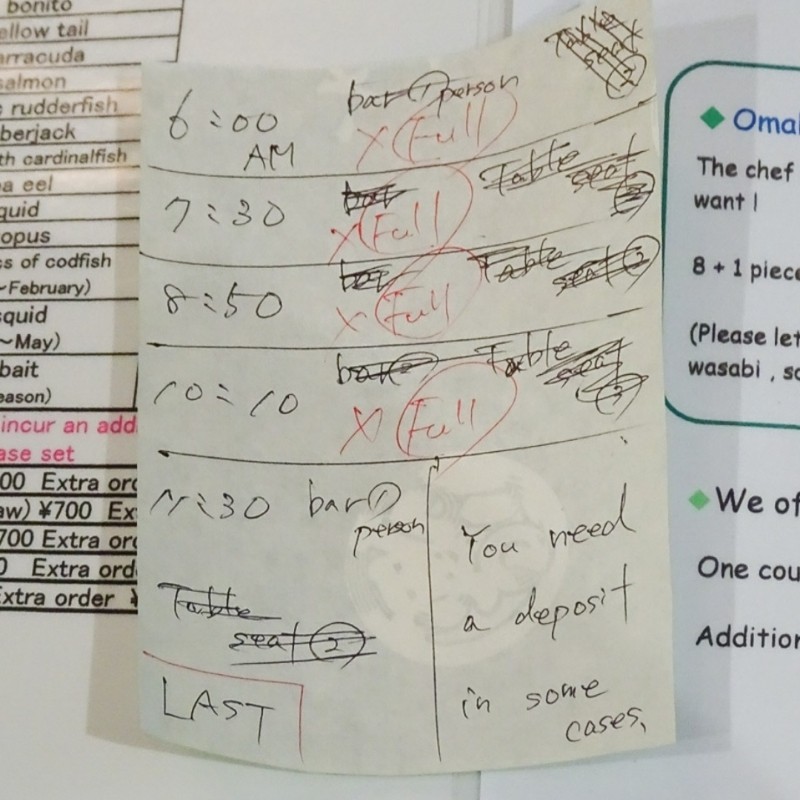 bonito
ellow tail
arracuda
salmon
rudderfish
berjack
th cardinalfish
ea eel
quid
opus
es of codfish
~February)
squid
~May)
bait
eason)
incur an add
ase set
00 Extra orc
aw) ¥700 Ex
700 Extra orc
0 Extra orde
Extra order ¥
6:00 AM
bar ① person
Table seat ②
× Full
7:30
bar
Table seat ②
× Full
8:50
bar
Table seat ②
× Full
10:10
bar
Table seat ②
× Full
11:30 bar ① person
Table
seat ②
LAST
You need
a deposit
in some
cases.
◆ Omak
The chef
want
8 + 1 piece
(Please let
wasabi , so
◆ We of
One cou
Addition